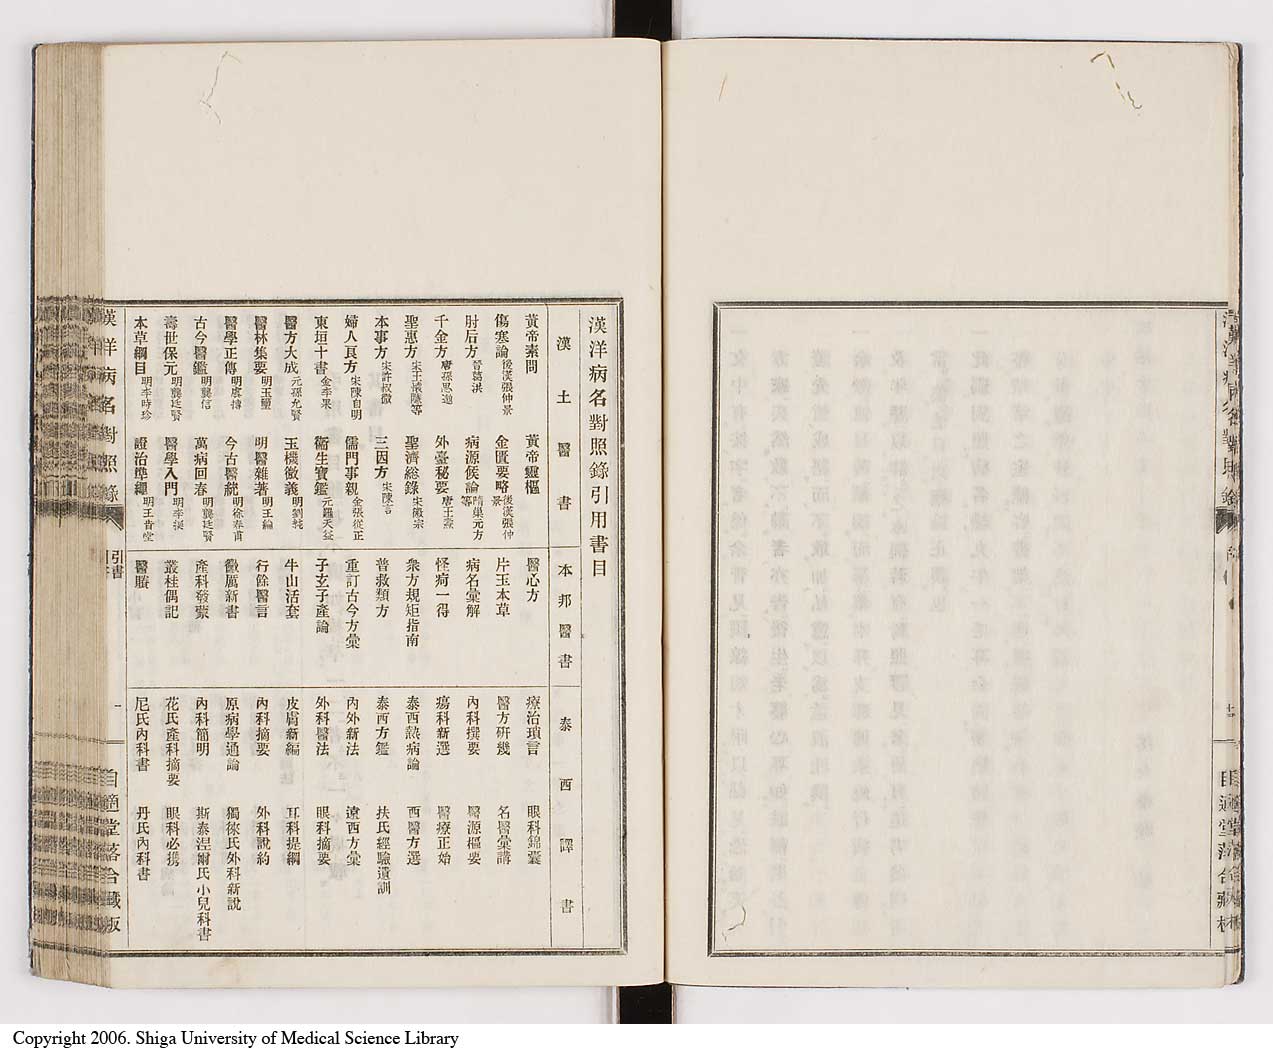 漢洋病名對照錄引用書目
漢土醫書
本邦醫書
泰西譯書
黃帝素問
黃帝靈樞
醫心方
療治瑣言
眼科錦囊
傷寒論 後漢張仲景
金匱要略 後漢張仲景
片玉本草
醫方研幾
名醫彙講
肘后方 晉葛洪
病源候論 隋巢元方等
病名彙解
內科撰要
醫源樞要
千金方 唐孫思邈
外臺秘要 唐王燾
怪病一得
瘍科新選
醫療正始
聖惠方 宋王懷隱等
聖濟總錄 宋徽宗
衆方規矩指南
泰西熱病論
西醫方選
本事方 宋許叔微
三因方 宋陳言
普救類方
泰西方鑑
扶氏經驗遺訓
婦人良方 宋陳自明
儒門事親 金張從正
重訂古今方彙
內外新法
遠西方彙
東垣十書 金李杲
衞生寶鑑 元羅天益
子玄子產論
外科醫法
眼科摘要
醫方大成 元孫允賢
玉機微義 明劉純
牛山活套
皮膚新編
耳科提綱
醫林集要 明王璽
明醫雜著 明王綸
行餘醫言
內科摘要
外科說約
醫學正傳 明虞摶
今古醫統 明徐春甫
黴厲新書
原病學通論
獨徠氏外科新說
古今醫鑑 明龔信
萬病回春 明龔廷賢
產科發蒙
內科簡明
斯泰涅爾氏小兒科書
壽世保元 明龔廷賢
醫學入門 明李梴
叢桂偶記
花氏產科摘要
眼科必携
本草綱目 明李時珍
證治準繩 明王肯堂
醫賸
尼氏內科書
丹氏內科書
漢洋病名對照錄
引書
一
自適堂落合藏版
Copyright 2006. Shiga University of Medical Science Library